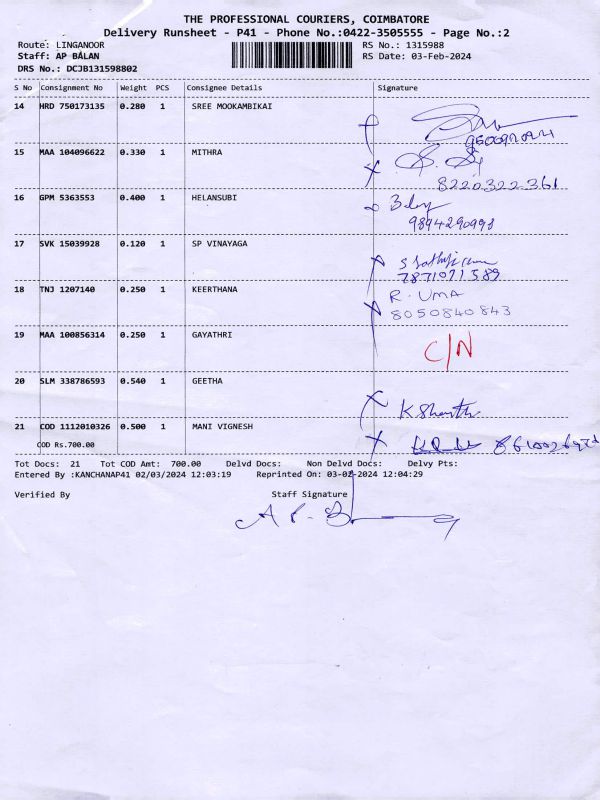 THE PROFESSIONAL COURIERS, COIMBATORE
Delivery Runsheet - P41 - Phone No.:0422-3505555 - Page No.:2
Route: LINGANOOR RS No.: 1315988
Staff: AP BALAN RS Date: 03-Feb-2024
DRS No.: DCJB131598802
S No Consignment No Weight PCS Consignee Details Signature
14 HRD 750173135 0.280 1 SREE MOOKAMBIKAI
15 MAA 104096622 0.330 1 MITHRA
8220322361
16 GPM 5363553 0.400 1 HELANSUBI
9894290998
17 SVK 15039928 0.120 1 SP VINAYAGA
7871071589
18 TNJ 1207140 0.250 1 KEERTHANA R. UMA
8050840843
19 MAA 100856314 0.250 1 GAYATHRI C/N
20 SLM 338786593 0.540 1 GEETHA
21 COD 1112010326 0.500 1 MANI VIGNESH
COD Rs.700.00
Tot Docs: 21 Tot COD Amt: 700.00 Delvd Docs: Non Delvd Docs: Delvy Pts:
Entered By :KANCHANAP41 02/03/2024 12:03:19 Reprinted On: 03-02-2024 12:04:29
Verified By Staff Signature